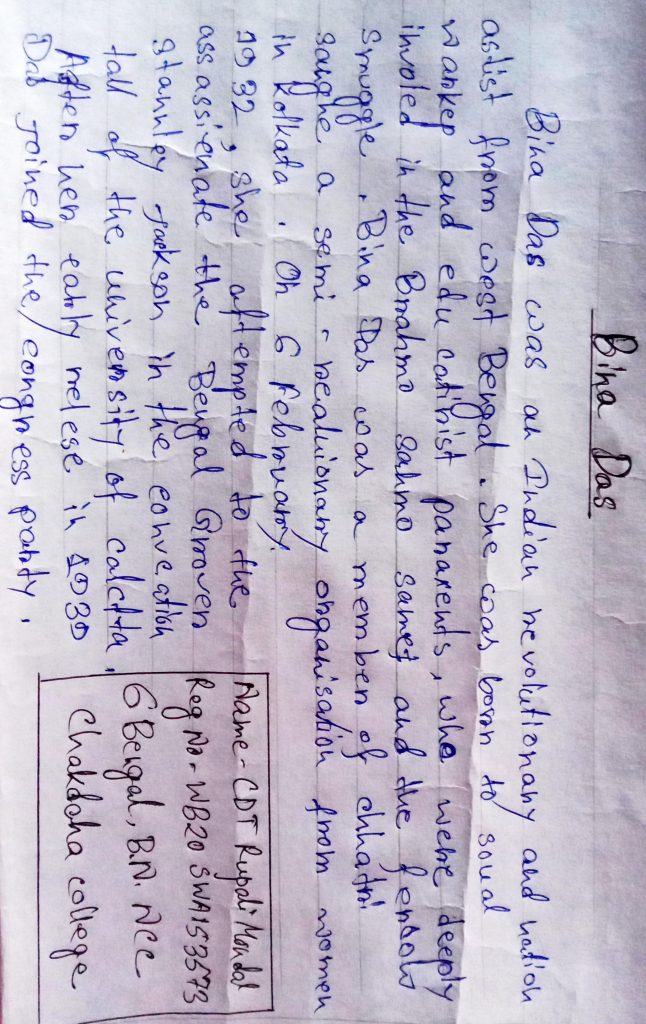 Bina Das
Bina Das was an Indian revolutionary and nation
astist from west Bengal. She was born to soual
wanker and edu catibist panarents, who were deeply
involed in the Brahmo sahmo samet and the fendow
smuggle. Bina Das was a member of chhatri
sanghe a semi-realuionary organisation from women
in Kolkata. On 6 February.
1932, she aftempted to the
assassienate the Bengal Grnoven
stannley Jackson in the convcation
tall of the university of calctta.
After her early relese in 1939
Das joined the congress party.
Name - CDT Rupali Mondal
Reg No - WB20 SWA153573
6 Bengal, B.N. NCC
Chakdaha college